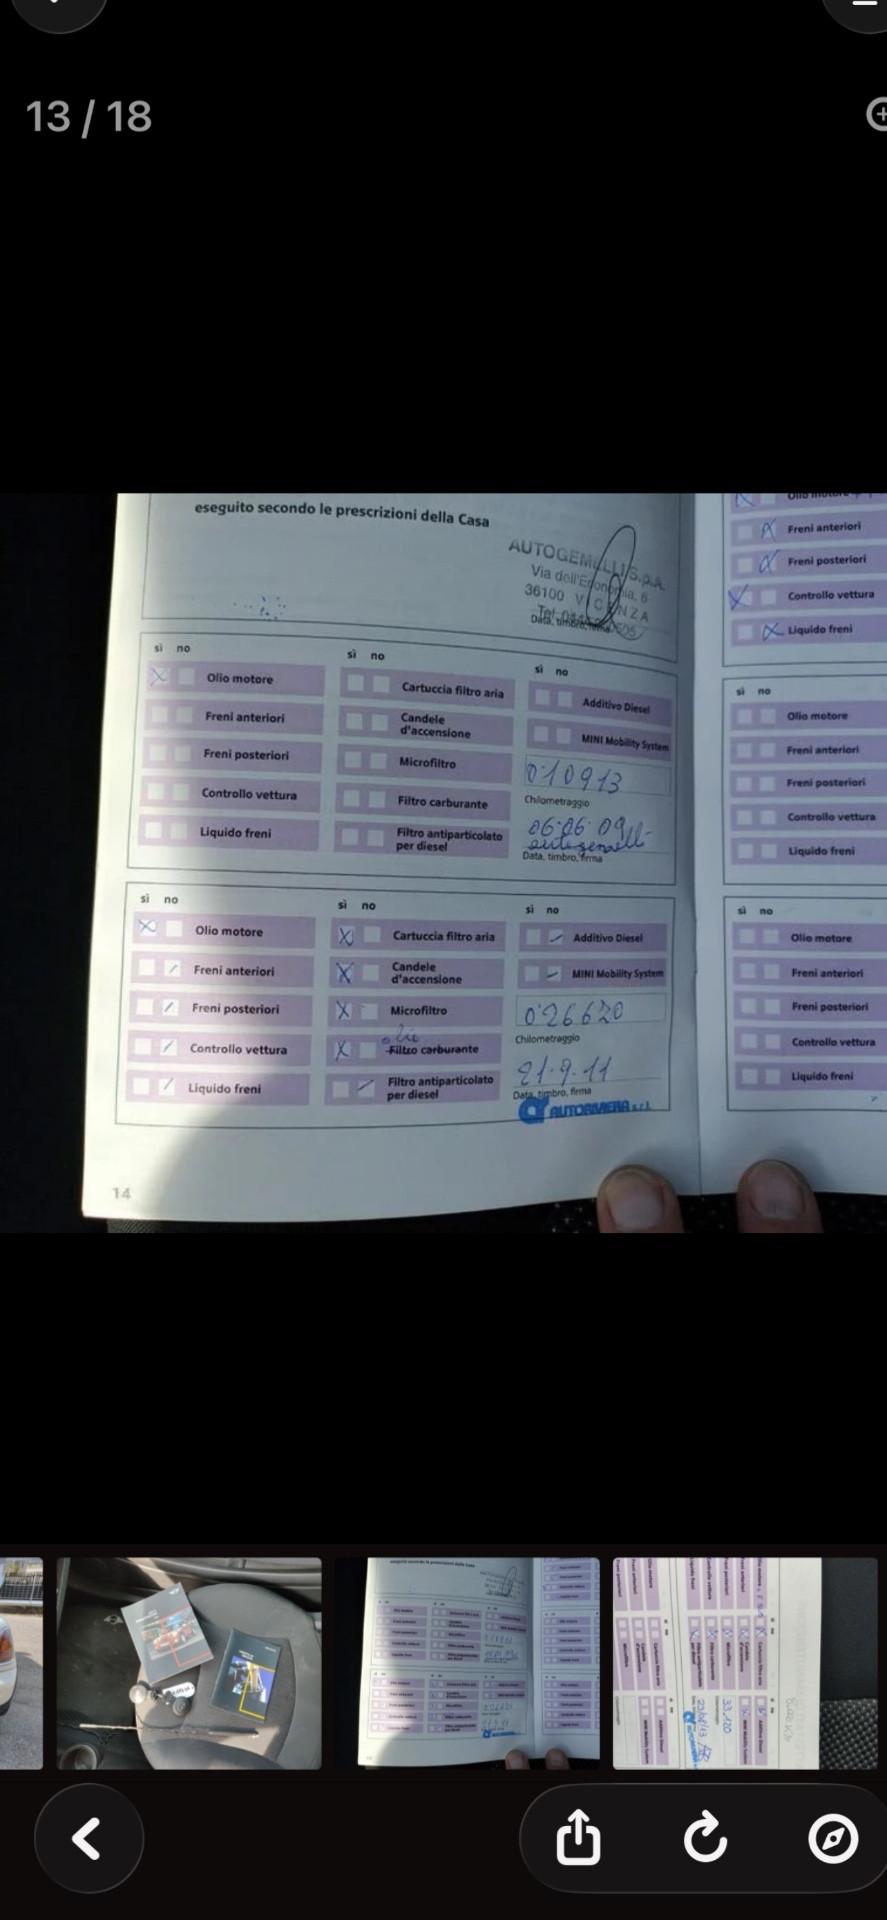 13 / 18
eseguito secondo le prescrizioni della Casa
AUTOGEMELLI S.p.A.
Via dell'Economia, 6
36100 VICENZA
Data, timbro, firma
sì no
Olio motore
Freni anteriori
Freni posteriori
Controllo vettura
Liquido freni
sì no
Cartuccia filtro aria
Candele
d'accensione
Microfiltro
Filtro carburante
Filtro antiparticolato
per diesel
sì no
Additivo Diesel
MINI Mobility System
010913
Chilometraggio
06.06.09
Data, timbro, firma
sì no
Olio motore
Freni anteriori
Freni posteriori
Controllo vettura
Liquido freni
sì no
Cartuccia filtro aria
Candele
d'accensione
Microfiltro
olio
Filtro carburante
Filtro antiparticolato
per diesel
sì no
Additivo Diesel
MINI Mobility System
026620
Chilometraggio
21.9.11
Data, timbro, firma
AUTORIVIERA s.r.l.
14
Olio motore
Freni anteriori
Freni posteriori
Controllo vettura
Liquido freni
sì no
Olio motore
Freni anteriori
Freni posteriori
Controllo vettura
Liquido freni
sì no
Olio motore
Freni anteriori
Freni posteriori
Controllo vettura
Liquido freni